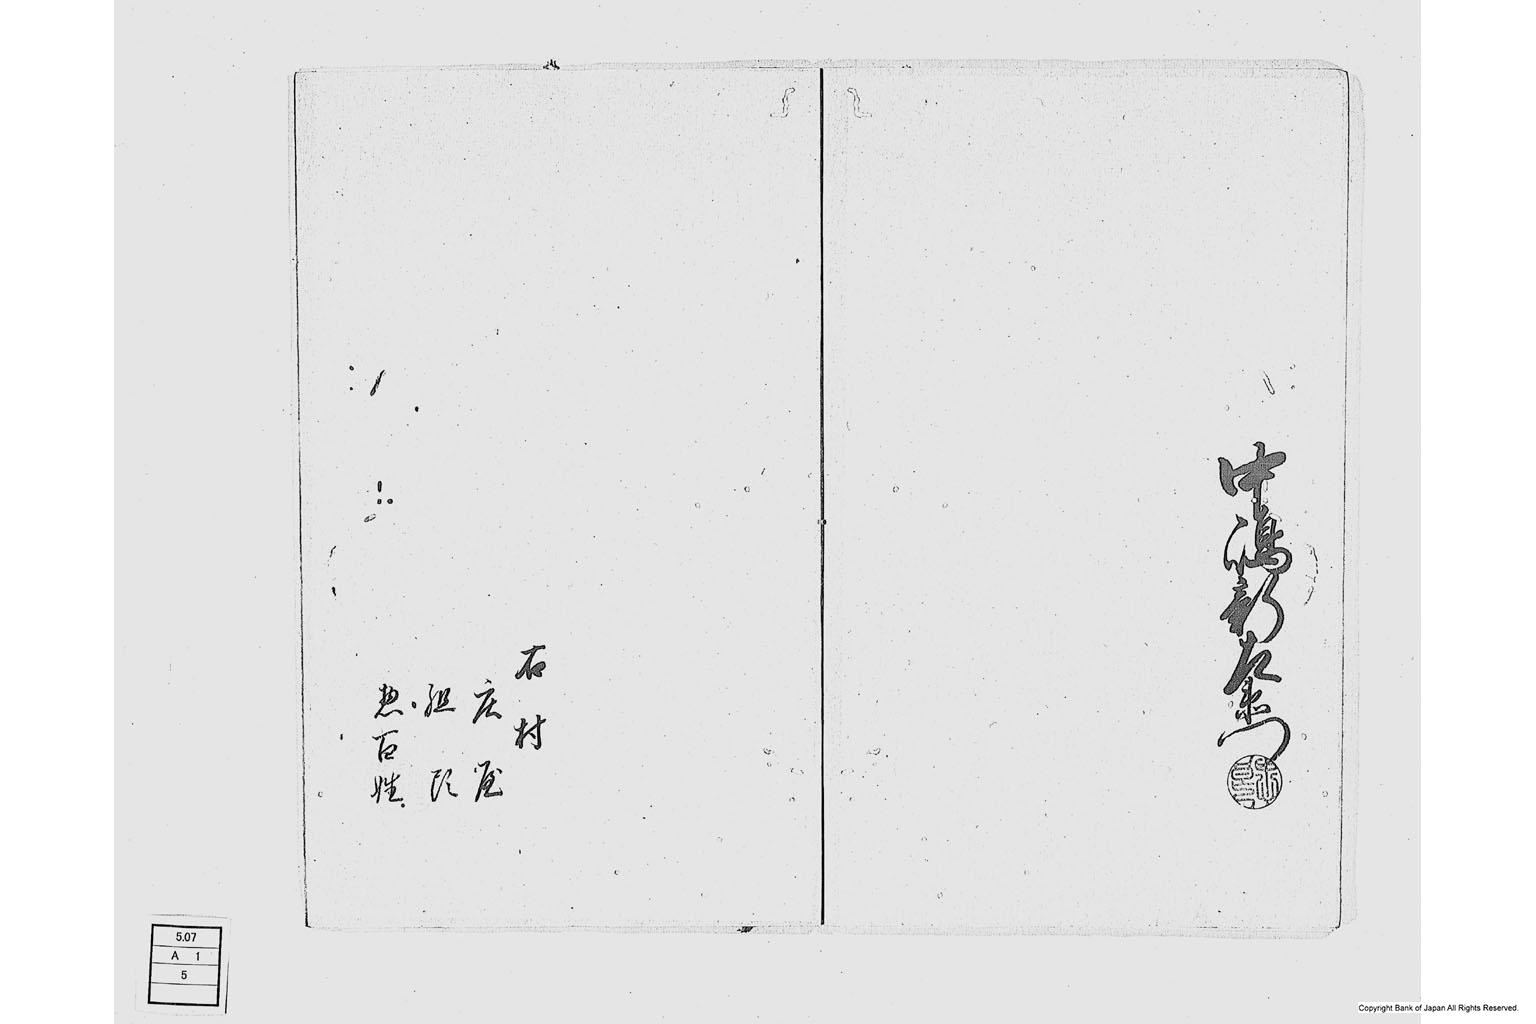 中嶋新左衛門
右村
庄屋
組頭
惣百姓
5.07
A 1
5
Copyright Bank of Japan All Rights Reserved.